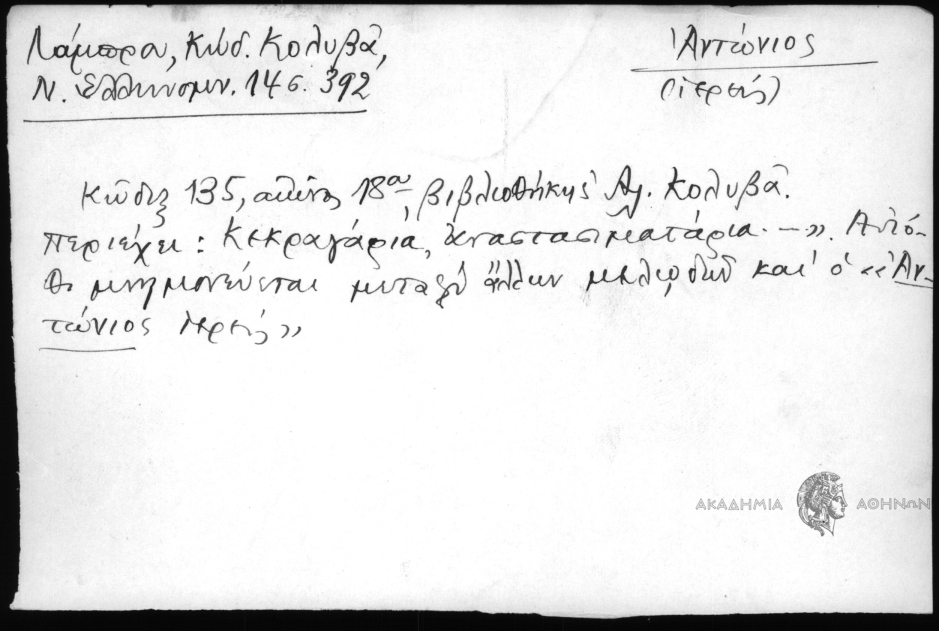 Λάμπρου, Κώδ. Κολυβᾶ,
Ν. Ἑλληνομν. 14 σ. 392
Ἀντώνιος
(ἱερεύς)
Κῶδιξ 135, αἰῶνος 18ου βιβλιοθήκης Αγ. Κολυβᾶ.
Περιέχει: Κεκραγάρια, ἀναστασιματάρια. —». Αὐτό-
θι μνημονεύεται μεταξὺ ἄλλων μελῳδῶν καὶ ὁ «Ἀν-
τώνιος ἱερεύς»
ΑΚΑΔΗΜΙΑ ΑΘΗΝΩΝ